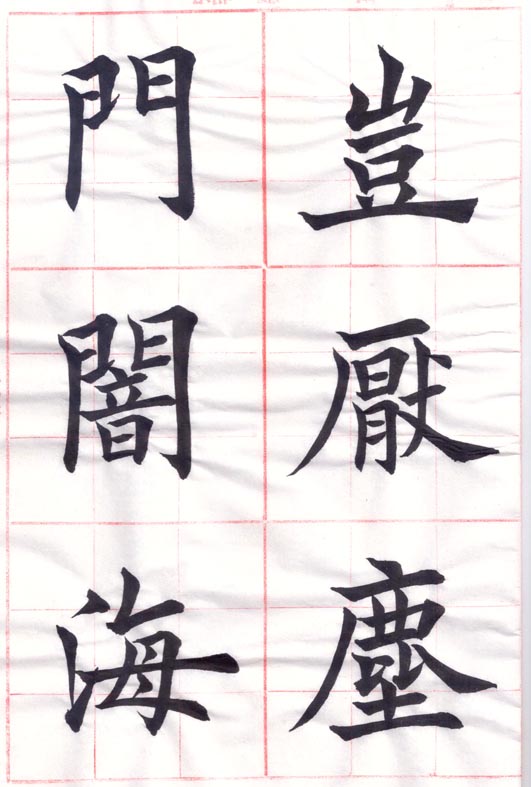 豈厭塵
門闇海